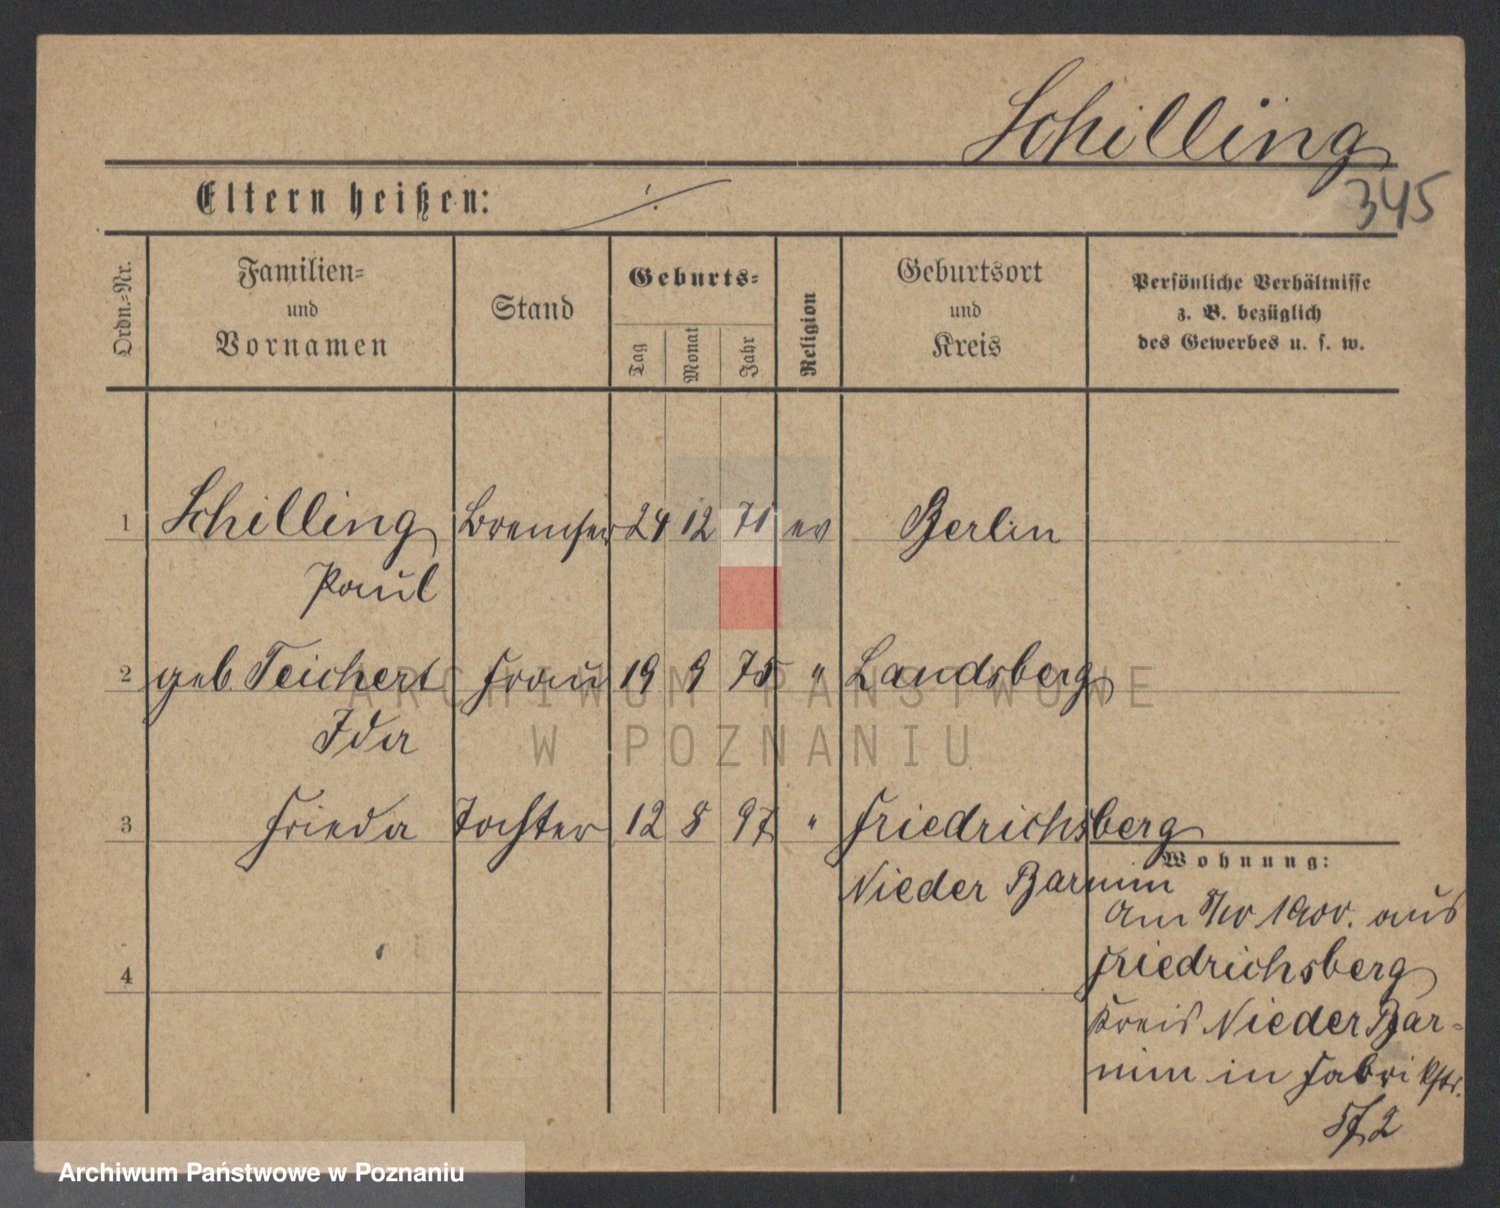 Schilling
345
Eltern heißen: ·/.
Ordn.-Nr.
Familien-
und
Vornamen
Stand
Geburts-
Tag
Monat
Jahr
Religion
Geburtsort
und
Kreis
Persönliche Verhältnisse
z. B. bezüglich
des Gewerbes u. s. w.
1 Schilling Bremser 24 12 71 ev Berlin
Paul
2 geb. Teichert Frau 19 9 75 " Landsberg
Ida
3 Frieda Tochter 12 8 97 " Friedrichsberg
Nieder Barnim
Wohnung:
am 1900. aus
Friedrichsberg
4
Kreis Nieder Bar-
nim in Fabrikstr.
2
ARCHIWUM PAŃSTWOWE
W POZNANIU
Archiwum Państwowe w Poznaniu